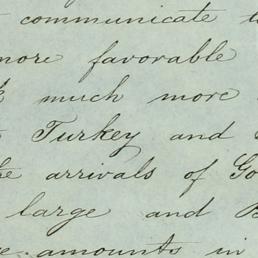 communicate
more favorable
much more
Turkey and
arrivals of
large and
amounts in